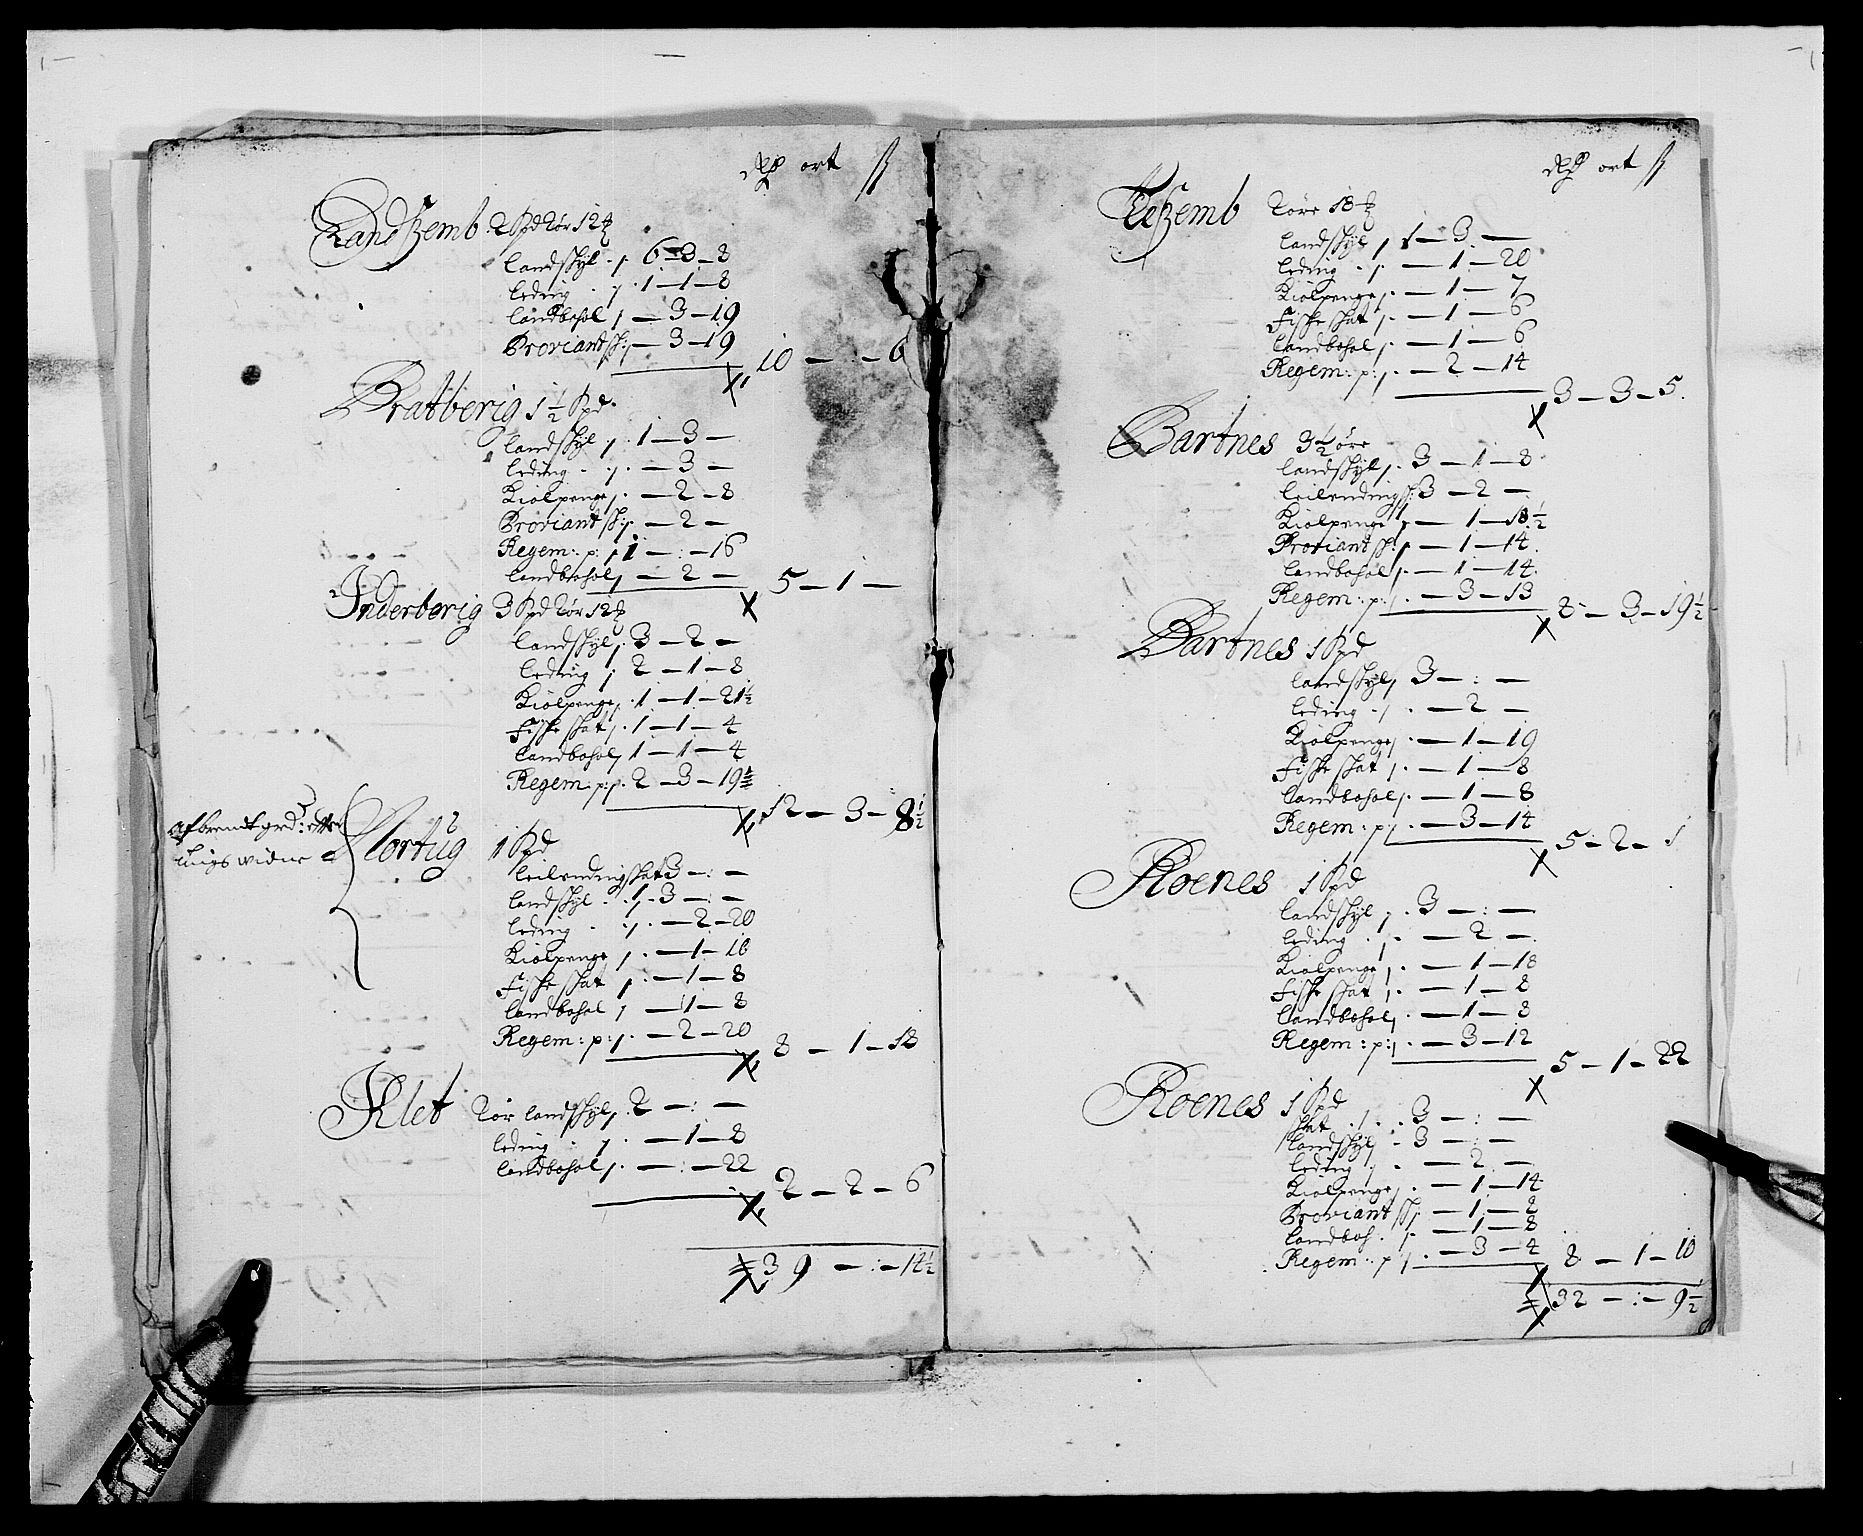 dlr ort ß
Randhemb 2 Spd 2ør 12
Landskyl 6 – 3 – 8
leding 1 – 1 – 8
landbohol – 3 – 19
Proviantsk: – 3 – 19
10 – : – 6
Bratberig 1½ Spd
landskyl 1 – 3 –
leding – 3 –
Kiolpenge – 2 – 8
Proviant sk: – 2 –
Regem: p: 1 – : – 16
landbohol – 2 –
5 – 1 –
Inderberig 3 Spd 2ør 12
landskyl 3 – 2 –
leding 2 – 1 – 8
Kiolpenge 1 – 1 – 21½
Fiske skat 1 – 1 – 4
landbohol 1 – 1 – 4
Regem: p: 2 – 3 – 19
12 – 3 – 8½
afbrendt grd: efter
tings widne
Hortug 1 Spd
leilendingskat 3 – : –
landskyl 3 – : –
leding – 2 – 20
Kiolpenge – 1 – 10
Fiske skat – 1 – 8
landbohol – 1 – 8
Regem: p: – 2 – 20
8 – 1 – 18
Klet 2ør landskyl 2 – : –
leding – 1 – 8
landbohol – : – 22
2 – 2 – 6
39 – : – 14½
dlr ort ß
Tetzemb 2øre 18
landskyl 1 – 3 –
leding – 1 – 20
Kiolpenge – 1 – 7
Fiske skat – 1 – 6
landbohol – 1 – 6
Regem: p: – 2 – 14
3 – 3 – 5
Bartnes 3½ øre
landskyl 3 – 1 – 8
leilendingsk: 3 – 2 –
Kiolpenge – 1 – 18½
Proviant sk: – 1 – 14
landbohol – 1 – 14
Regem: p: – 3 – 13
8 – 3 – 19½
Bartnes 1 Spd
landskyl 3 – : –
leding – 2 –
Kiolpenge – 1 – 19
Fiske skat – 1 – 8
landbohol – 1 – 8
Regem: p: – 3 – 14
5 – 2 – 1
Roenes 1 Spd
landskyl 3 – : –
leding – 2 –
Kiolpenge – 1 – 18
Fiske skat – 1 – 8
landbohol – 1 – 8
Regem: p: – 3 – 12
5 – 1 – 22
Roenes 1 Spd
skat 3 – : –
landskyl 3 – : –
leding – 2 –
Kiolpenge – 1 – 14
Proviant sk: – 1 – 8
landboh. – 1 – 8
Regem: p: – 3 – 4
8 – 1 – 10
32 – : – 9½